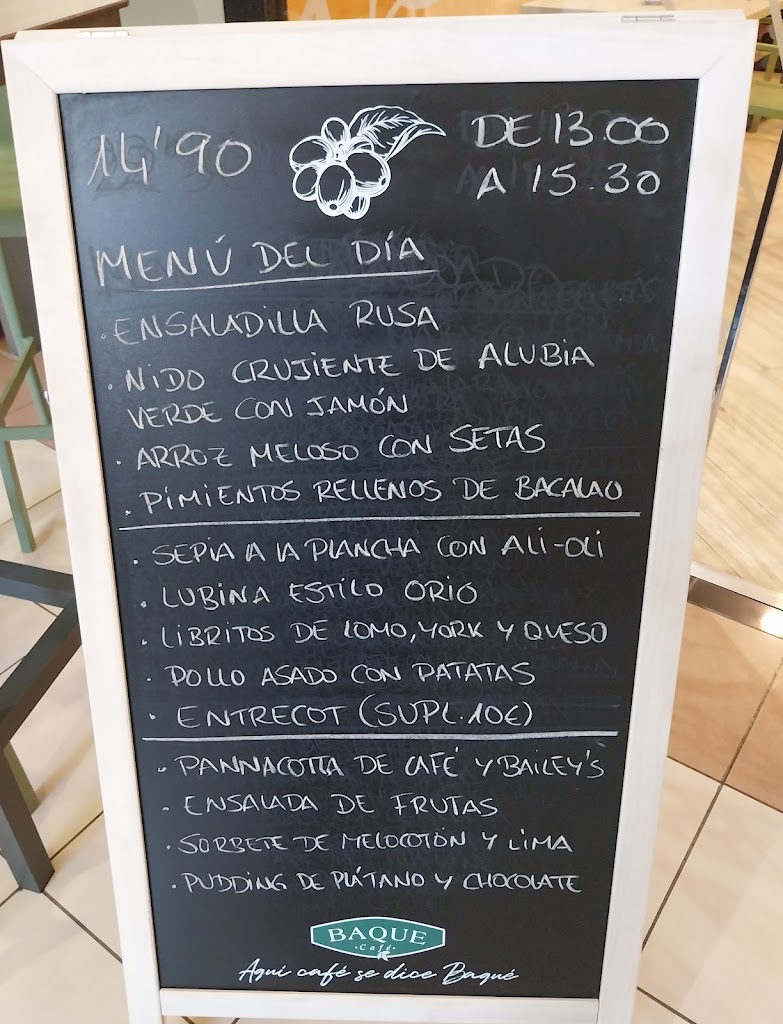 14'90
DE 13.00
A 15.30
MENÚ DEL DÍA
· ENSALADILLA RUSA
· NIDO CRUJIENTE DE ALUBIA
VERDE CON JAMÓN
· ARROZ MELOSO CON SETAS
· PIMIENTOS RELLENOS DE BACALAO
· SEPIA A LA PLANCHA CON ALI-OLI
· LUBINA ESTILO ORIO
· LIBRITOS DE LOMO, YORK Y QUESO
· POLLO ASADO CON PATATAS
· ENTRECOT (SUPL. 10€)
· PANNACOTTA DE CAFÉ Y BAILEY'S
· ENSALADA DE FRUTAS
· SORBETE DE MELOCOTÓN Y LIMA
· PUDDING DE PLÁTANO Y CHOCOLATE
BAQUE
·Café·
Aquí café se dice Baqué